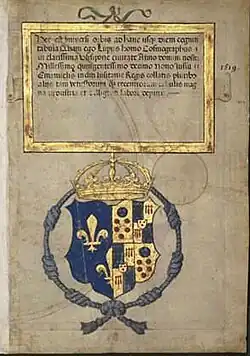 Hec est universi orbis ad hanc usqz diem cogniti
tabula quam ego Lupus homo Cosmographus
in clarissima Ulisipone civitate Anno domini nostri
Millessimo quingentessimo decimo nono Jussu
Emanuelis Lusitanie Regis collatis pluribus
aliis tam vetustorum qz recentiorum tabulis mag
na industria et diligenti labore depinxi
1519.